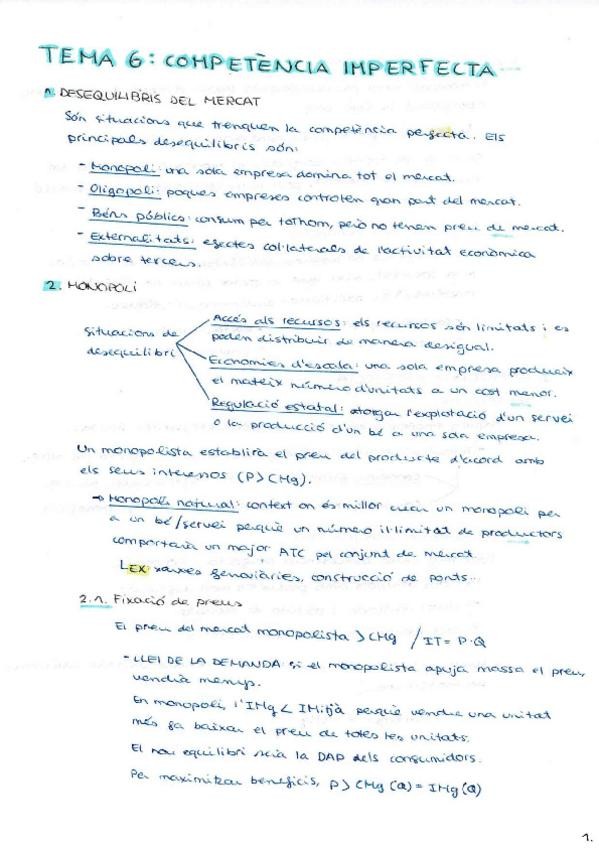 TEMA 6: COMPETÈNCIA IMPERFECTA
1. DESEQUILIBRIS DEL MERCAT
Són situacions que trenquen la competència perfecta. Els
principals desequilibris són:
- Monopoli: una sola empresa domina tot el mercat.
- Oligopoli: poques empreses controlen gran part del mercat.
- Béns públics: consum per tothom, però no tenen preu de mercat.
- Externalitats: efectes col·laterals de l'activitat econòmica
sobre tercers.
2. MONOPOLI
Situacions de
desequilibri
Accés als recursos: els recursos són limitats i es
poden distribuir de manera desigual.
Economies d'escala: una sola empresa produeix
el mateix número d'unitats a un cost menor.
Regulació estatal: atorgar l'explotació d'un servei
o la producció d'un bé a una sola empresa.
Un monopolista establirà el preu del producte d'acord amb
els seus interessos (P > CMg).
→ Monopoli natural: context on és millor crear un monopoli per
a un bé/servei perquè un número il·limitat de productors
comportaria un major ATC pel conjunt de mercat.
EX: xarxes ferroviàries, construcció de ponts...
2.1. Fixació de preus
El preu del mercat monopolista > CMg / IT = P·Q
- LLEI DE LA DEMANDA: si el monopolista apuja massa el preu,
vendrà menys.
En monopoli, l'IMg < IMitjà perquè vendre una unitat
més fa baixar el preu de totes les unitats.
El nou equilibri seria la DAP dels consumidors.
Per maximitzar beneficis, P > CMg (Q) = IMg (Q)
1.